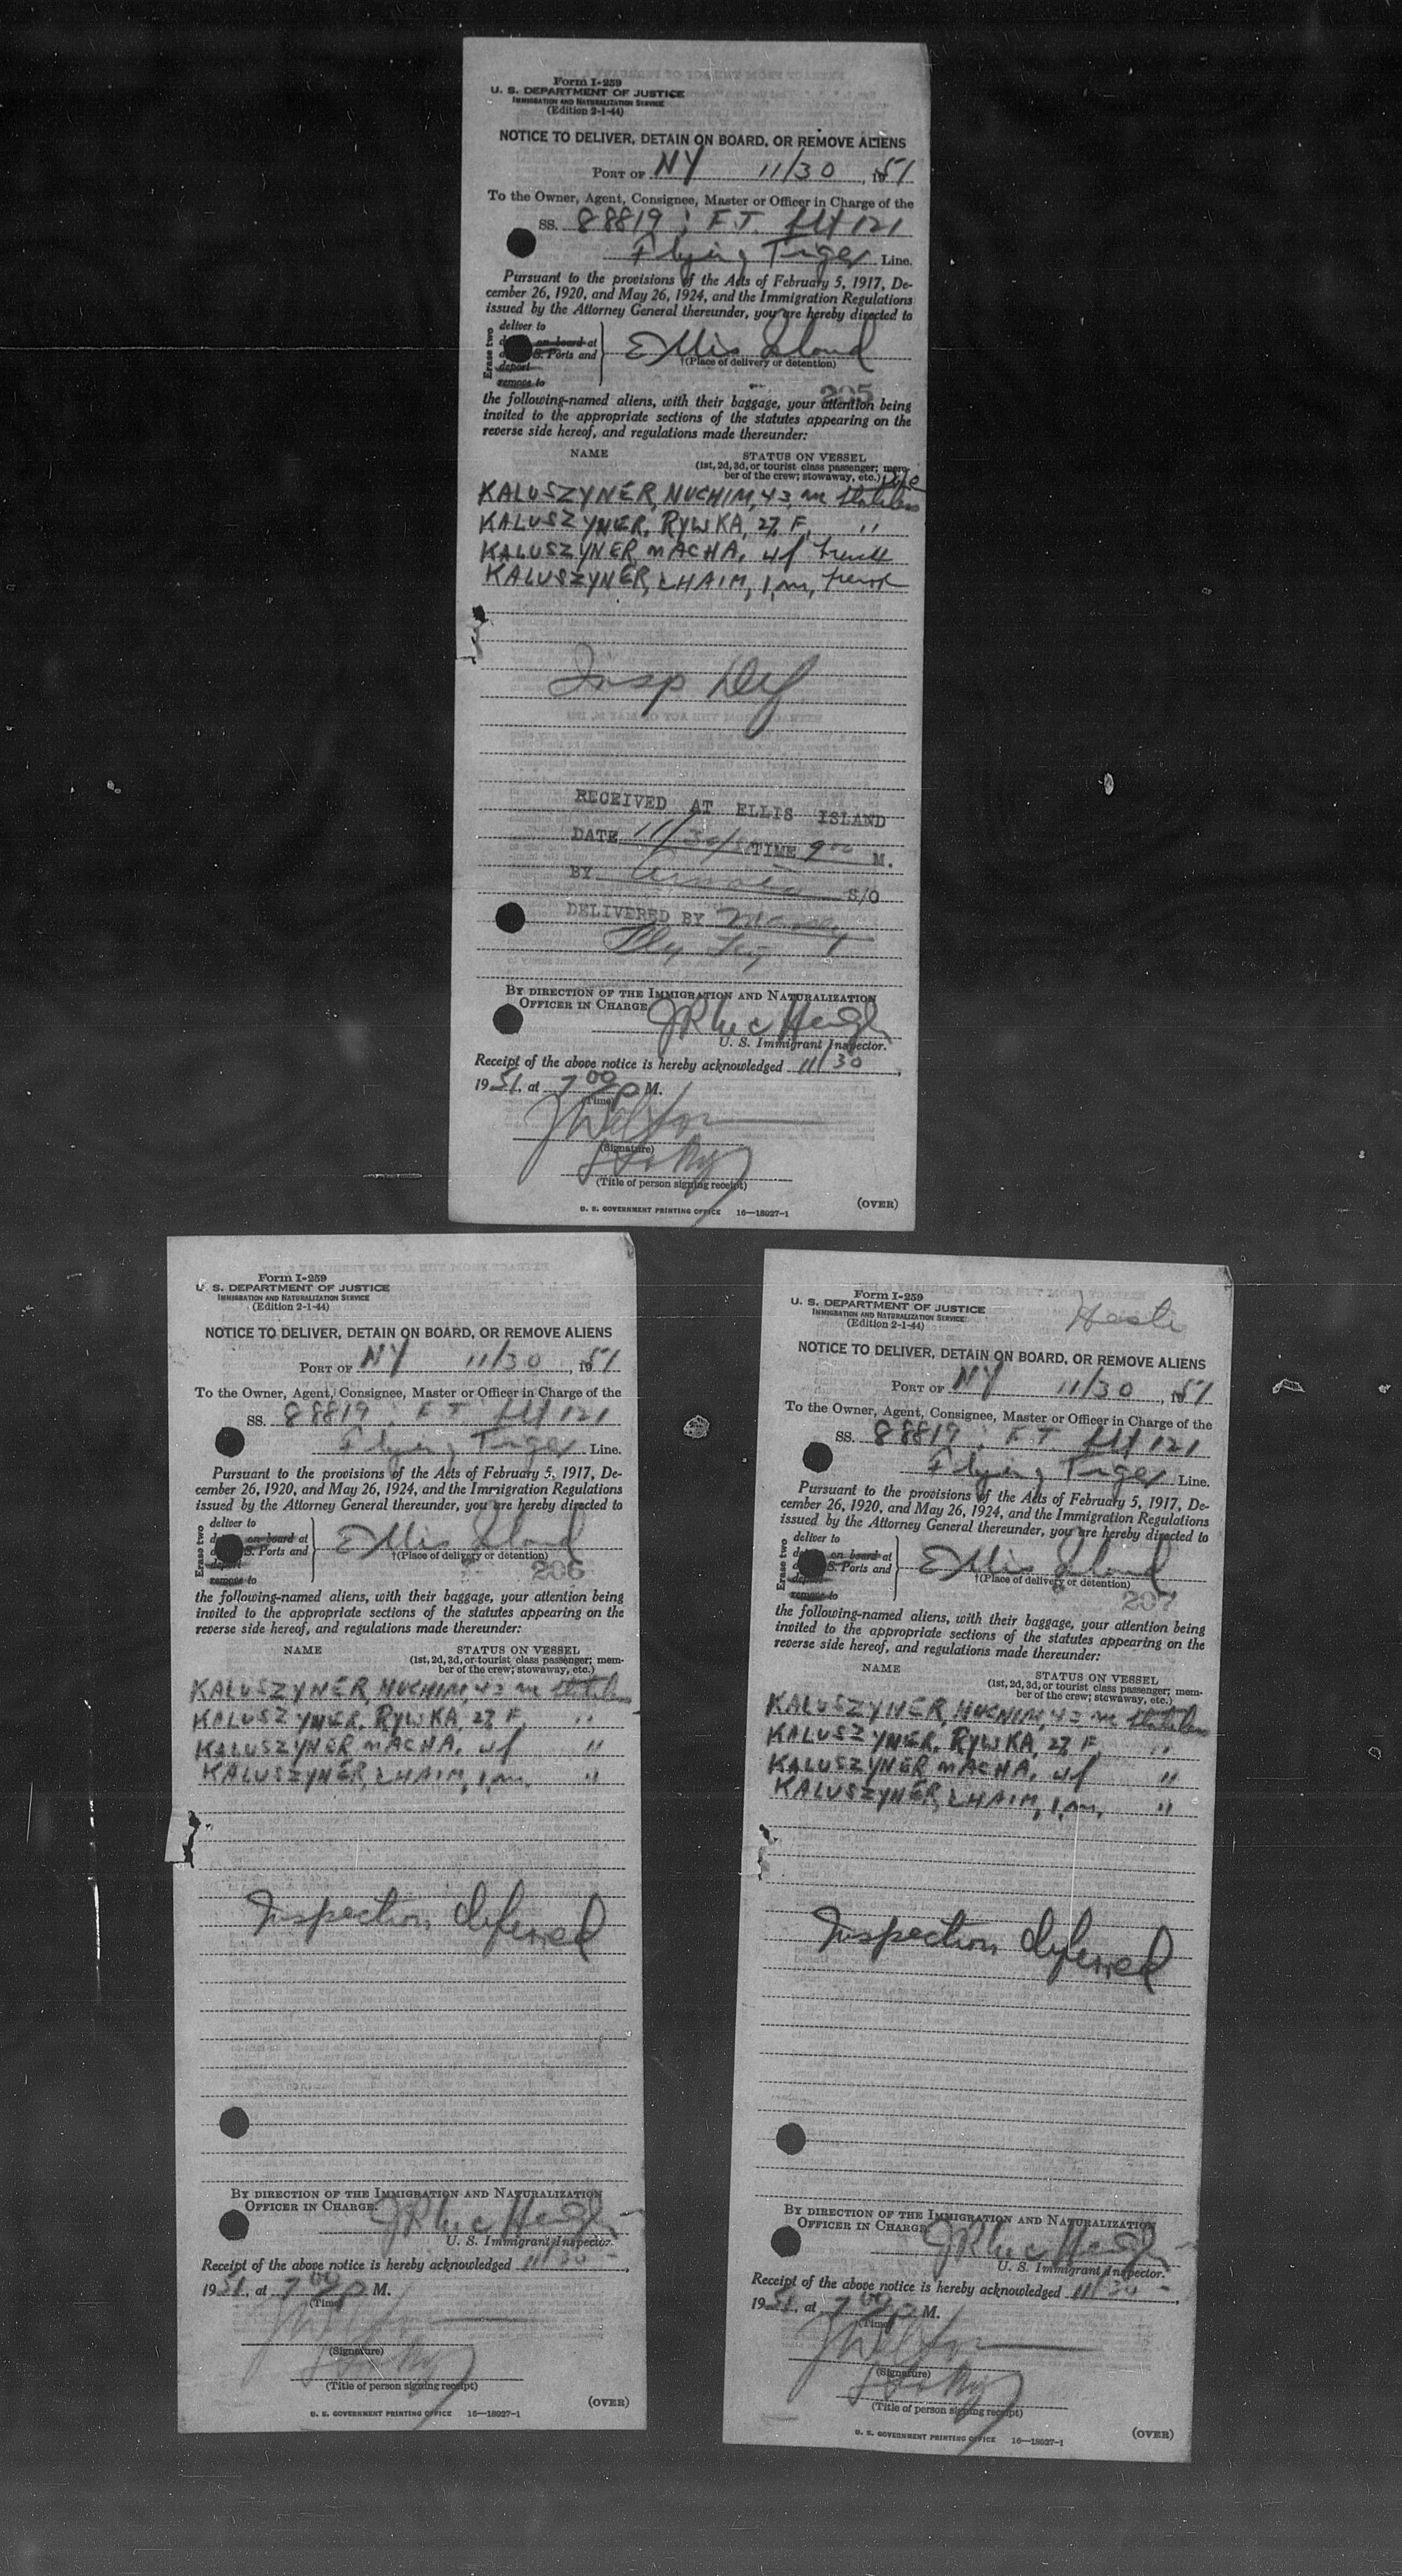 Form I-259
U. S. DEPARTMENT OF JUSTICE
IMMIGRATION AND NATURALIZATION SERVICE
(Edition 2-1-44)
NOTICE TO DELIVER, DETAIN ON BOARD, OR REMOVE ALIENS
PORT OF NY 11/30, 1951
To the Owner, Agent, Consignee, Master or Officer in Charge of the
SS. 88819; F.T. flt 121
Flying Tiger Line.
Pursuant to the provisions of the Acts of February 5, 1917, De-
cember 26, 1920, and May 26, 1924, and the Immigration Regulations
issued by the Attorney General thereunder, you are hereby directed to
Erase two
deliver to
on board at
S. Ports and
deport
remove to
Ellis Island
†(Place of delivery or detention)
205
the following-named aliens, with their baggage, your attention being
invited to the appropriate sections of the statutes appearing on the
reverse side hereof, and regulations made thereunder:
NAME STATUS ON VESSEL
(1st, 2d, 3d, or tourist class passenger; mem-
ber of the crew; stowaway, etc.)
KALUSZYNER, NUCHIM, 43, m stateless
KALUSZYNER, RYWKA, 27, F, "
KALUSZYNER MACHA, 4 f French
KALUSZYNER, CHAIM, 1, m, French
Insp Def
RECEIVED AT ELLIS ISLAND
DATE 11/30/ TIME 9 00 M.
BY S/O
DELIVERED BY
Fly Tig
BY DIRECTION OF THE IMMIGRATION AND NATURALIZATION
OFFICER IN CHARGE
U. S. Immigrant Inspector.
Receipt of the above notice is hereby acknowledged 11/30,
1951, at 7 00 P M.
(Time)
(Signature)
(Title of person signing receipt)
(OVER)
U. S. GOVERNMENT PRINTING OFFICE 16—18927-1
Form I-259
U. S. DEPARTMENT OF JUSTICE
IMMIGRATION AND NATURALIZATION SERVICE
(Edition 2-1-44)
NOTICE TO DELIVER, DETAIN ON BOARD, OR REMOVE ALIENS
PORT OF NY 11/30, 1951
To the Owner, Agent, Consignee, Master or Officer in Charge of the
SS. 88819; F.T. flt 121
Flying Tiger Line.
Pursuant to the provisions of the Acts of February 5, 1917, De-
cember 26, 1920, and May 26, 1924, and the Immigration Regulations
issued by the Attorney General thereunder, you are hereby directed to
Erase two
deliver to
on board at
S. Ports and
deport
remove to
Ellis Island
†(Place of delivery or detention)
206
the following-named aliens, with their baggage, your attention being
invited to the appropriate sections of the statutes appearing on the
reverse side hereof, and regulations made thereunder:
NAME STATUS ON VESSEL
(1st, 2d, 3d, or tourist class passenger; mem-
ber of the crew; stowaway, etc.)
KALUSZYNER, NUCHIM, 43 m stateless
KALUSZYNER, RYWKA, 27, F, "
KALUSZYNER MACHA, 4 f "
KALUSZYNER, CHAIM, 1, m, "
Inspection deferred
BY DIRECTION OF THE IMMIGRATION AND NATURALIZATION
OFFICER IN CHARGE.
U. S. Immigrant Inspector.
Receipt of the above notice is hereby acknowledged 11/30
1951, at 7 00 P M.
(Time)
(Signature)
(Title of person signing receipt)
(OVER)
U. S. GOVERNMENT PRINTING OFFICE 16—18927-1
Form I-259
U. S. DEPARTMENT OF JUSTICE
IMMIGRATION AND NATURALIZATION SERVICE
(Edition 2-1-44)
NOTICE TO DELIVER, DETAIN ON BOARD, OR REMOVE ALIENS
PORT OF NY 11/30, 1951
To the Owner, Agent, Consignee, Master or Officer in Charge of the
SS. 88819; F.T. flt 121
Flying Tiger Line.
Pursuant to the provisions of the Acts of February 5, 1917, De-
cember 26, 1920, and May 26, 1924, and the Immigration Regulations
issued by the Attorney General thereunder, you are hereby directed to
Erase two
deliver to
on board at
S. Ports and
deport
remove to
Ellis Island
†(Place of delivery or detention)
207
the following-named aliens, with their baggage, your attention being
invited to the appropriate sections of the statutes appearing on the
reverse side hereof, and regulations made thereunder:
NAME STATUS ON VESSEL
(1st, 2d, 3d, or tourist class passenger; mem-
ber of the crew; stowaway, etc.)
KALUSZYNER, NUCHIM, 43 m stateless
KALUSZYNER, RYWKA, 27, F, "
KALUSZYNER MACHA, 4 f "
KALUSZYNER, CHAIM, 1, m, "
Inspection deferred
BY DIRECTION OF THE IMMIGRATION AND NATURALIZATION
OFFICER IN CHARGE
U. S. Immigrant Inspector.
Receipt of the above notice is hereby acknowledged 11/30,
1951, at 7 00 P M.
(Time)
(Signature)
(Title of person signing receipt)
(OVER)
U. S. GOVERNMENT PRINTING OFFICE 16—18927-1